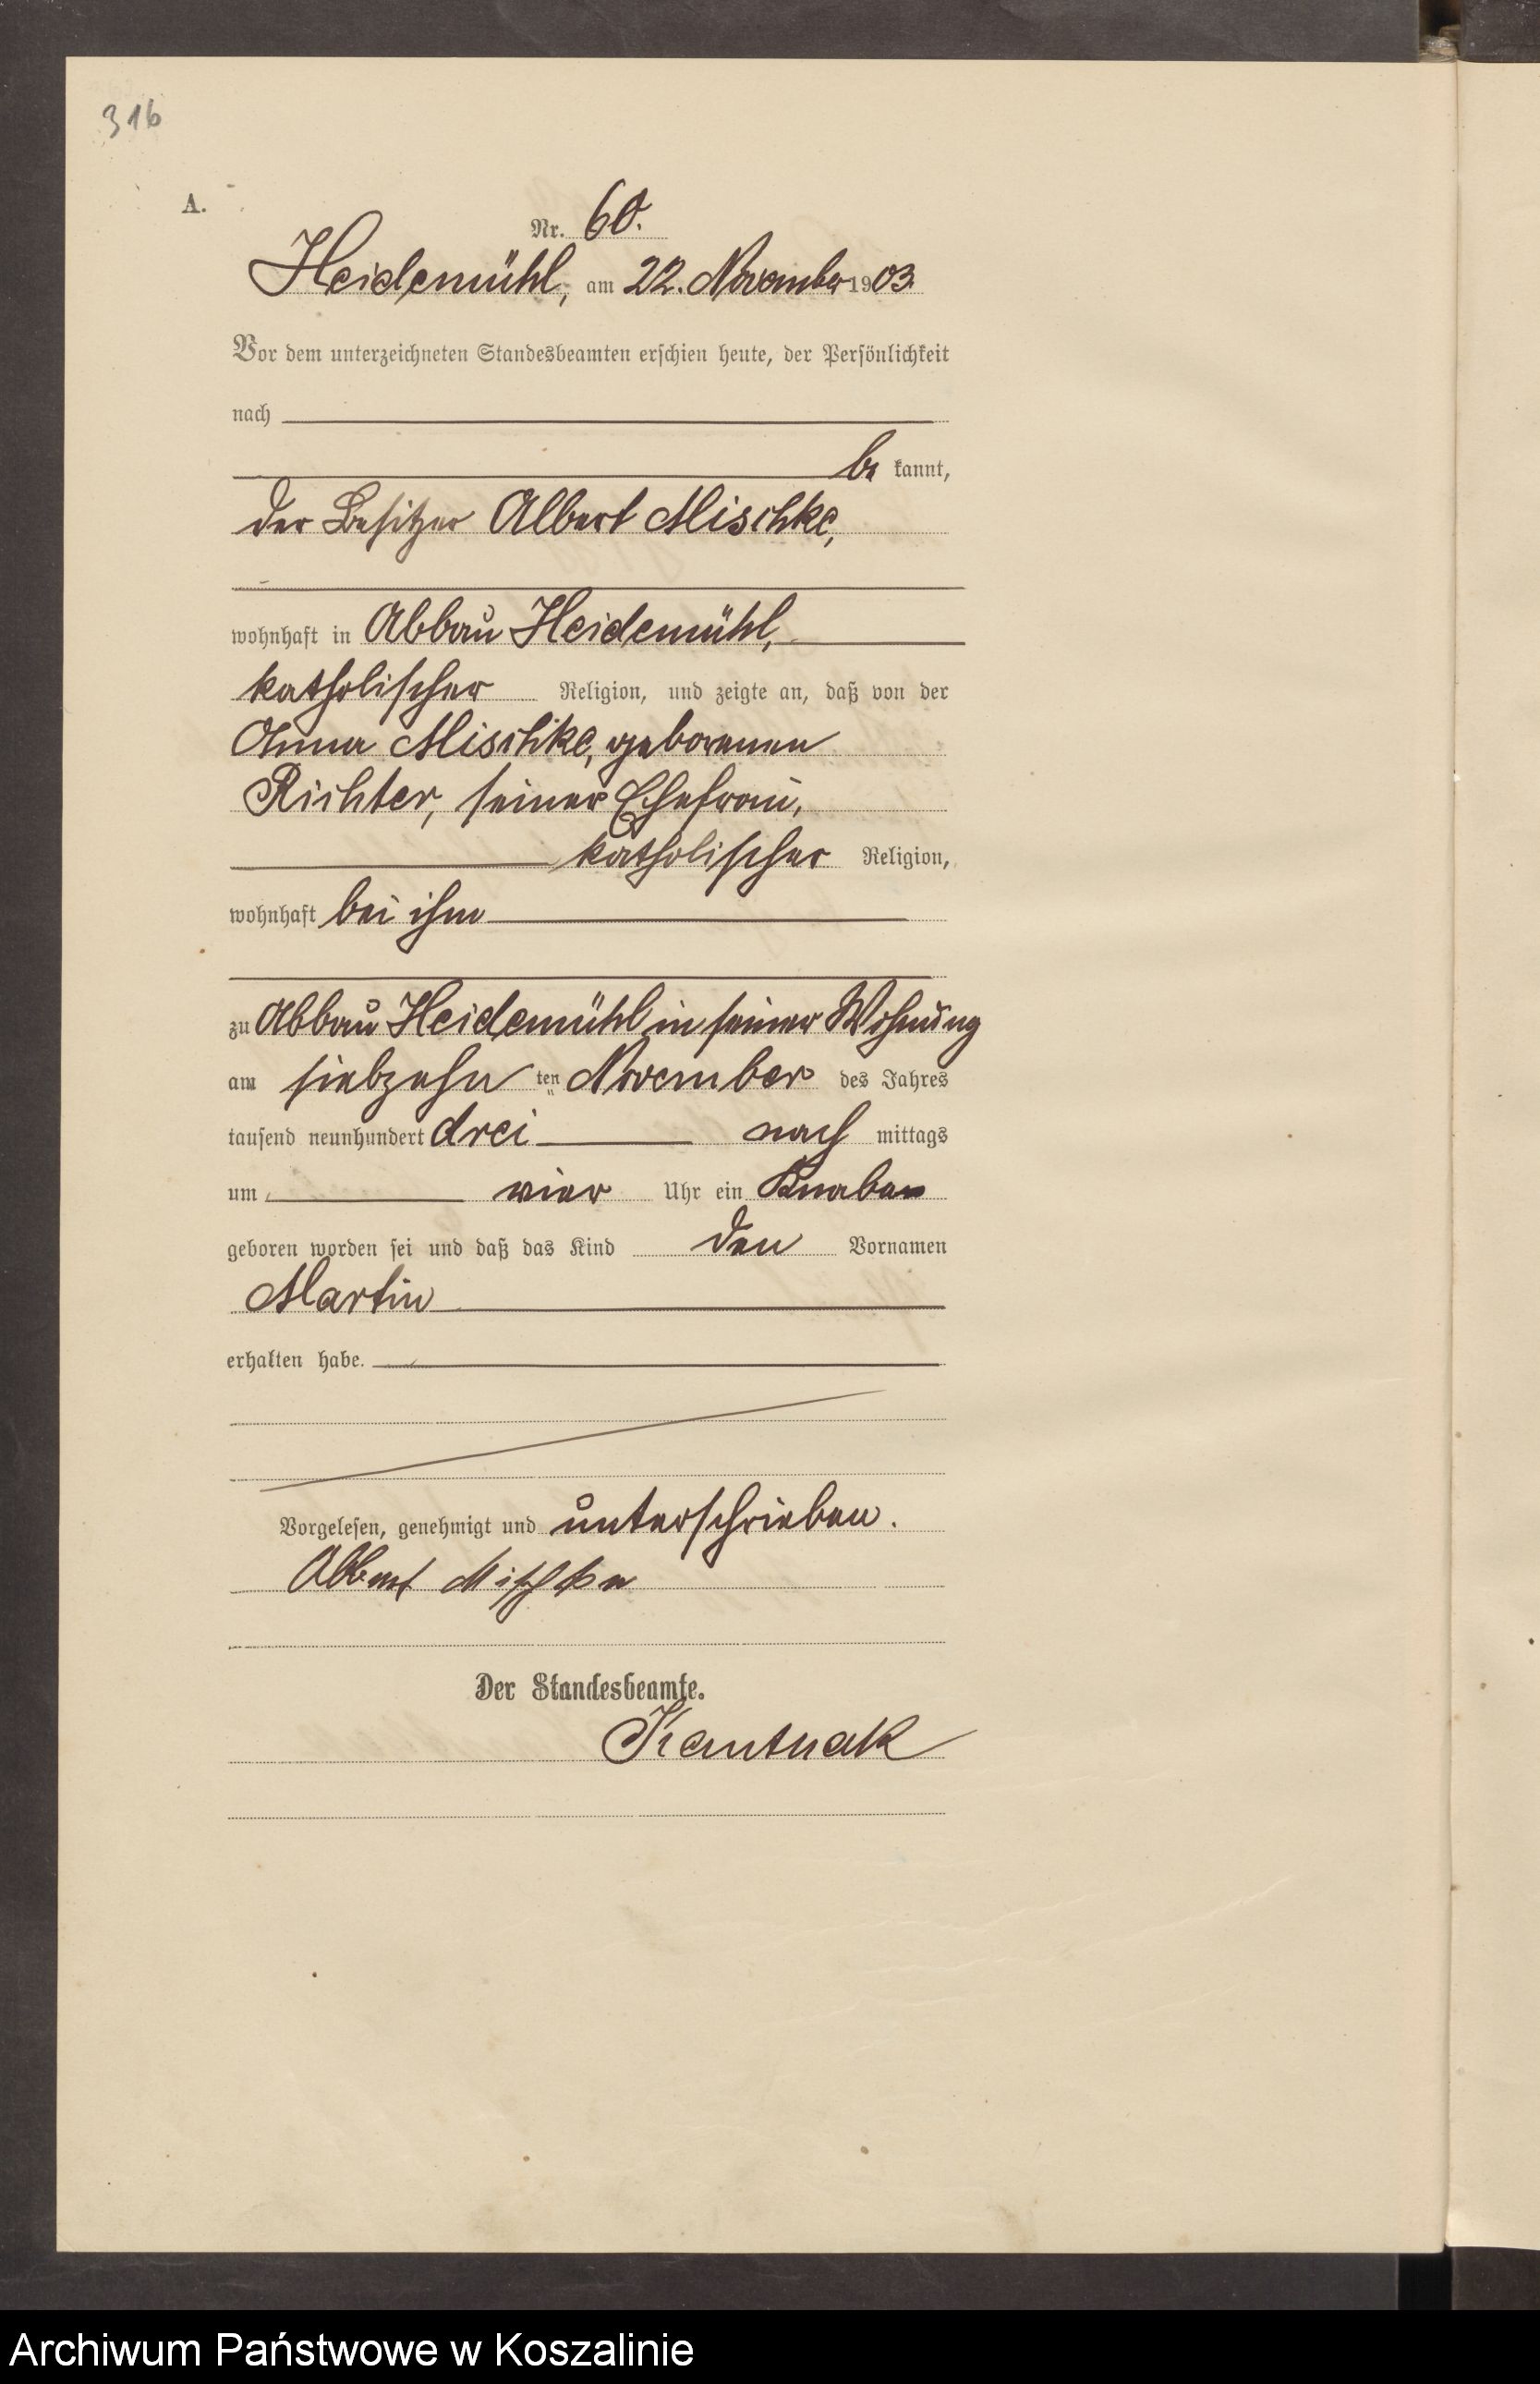 316
A.
Nr. 60.
Heidemühl, am 22. November 1903.
Vor dem unterzeichneten Standesbeamten erschien heute, der Persönlichkeit
nach
be kannt,
der Besitzer Albert Mischke,
wohnhaft in Abbau Heidemühl,
katholischer Religion, und zeigte an, daß von der
Anna Mischke, geborenen
Richter, seiner Ehefrau,
katholischer Religion,
wohnhaft bei ihm
zu Abbau Heidemühl in seiner Wohnung
am siebzehn ten November des Jahres
tausend neunhundert drei nach mittags
um vier Uhr ein Knabe
geboren worden sei und daß das Kind den Vornamen
Martin
erhalten habe.
Vorgelesen, genehmigt und unterschrieben.
Albert Mischke
Der Standesbeamte.
Kantnak
Archiwum Państwowe w Koszalinie